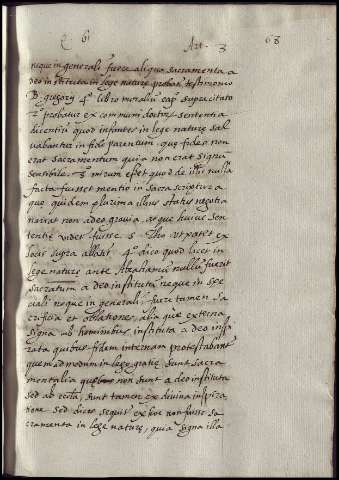 Q 61 Art. 3 68
neque in generali fuere aliqua sacramenta a
deo instituta in lege naturę probant testimonio
B. gregorij 4º libro moralium cap. supra citato
2º probatur ex communi doctorum sententia
dicentium quod infantes in lege naturę sal
vabantur in fide parentum quę fides non
erat sacramentum quia non erat signum
sensibile 3º mirum esset quod de illis nulla
facta fuisset mentio in sacra scriptura
quę quidem plurima illius status negotia
narrat non adeo gravia atque huius sen
tentię videtur fuisse S. Tho. ut patet ex
locis supra allatis 4º dico quod licet in
lege naturę ante Abrahamum nullum fuerit
sacratum a deo institutum neque in spe
ciali neque in generali fuere tamen sa
crificia et oblationes, aliaquę externa
signa ab hominibus instituta a deo inspi
rata quibus fidem internam protestabant
quemadmodum in lege gratię sunt sacra
mentalia quę non sunt a deo instituta
sed ab ecclesia, sunt tamen ex divina inspira
tione sed dices sequitur ex hoc non fuisse sa
cramenta in lege naturę, quia signa illa